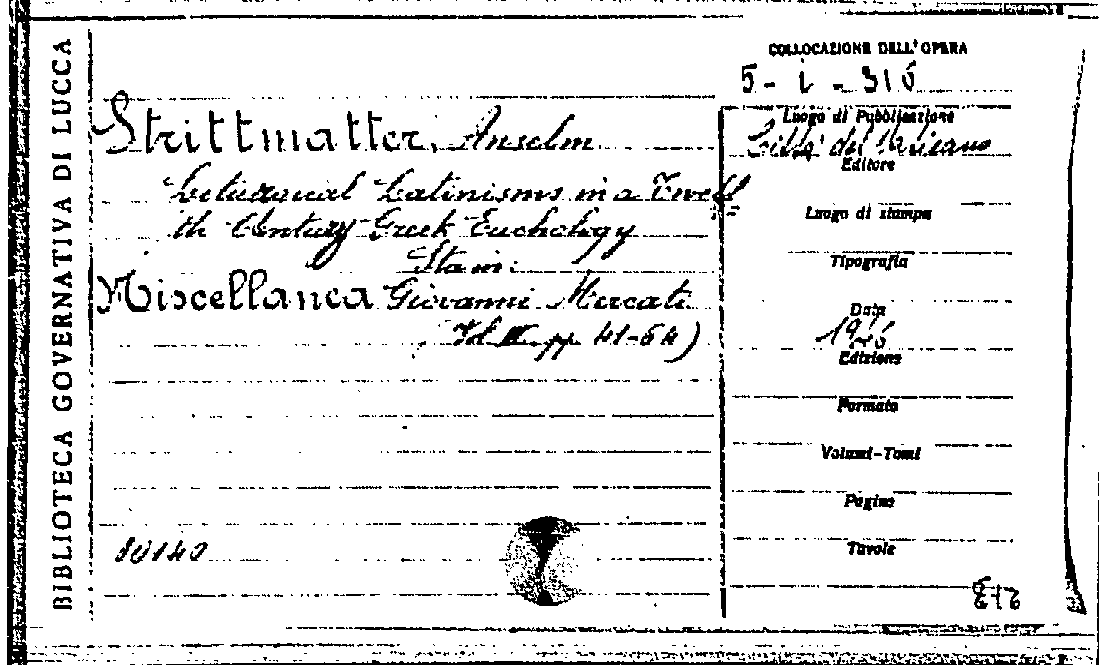 BIBLIOTECA GOVERNATIVA DI LUCCA
COLLOCAZIONE DELL'OPERA
5 - i - 316
Strittmatter, Anselm
Liturgical Latinisms in a Twelf=
th Century Greek Euchology
Sta in:
Miscellanea Giovanni Mercati
Vol. III. pp. 41-64)
80140
Luogo di Pubblicazione
Città del Vaticano
Editore
Luogo di stampa
Tipografia
Data
1946
Edizione
Formato
Volumi-Tomi
Pagine
Tavole